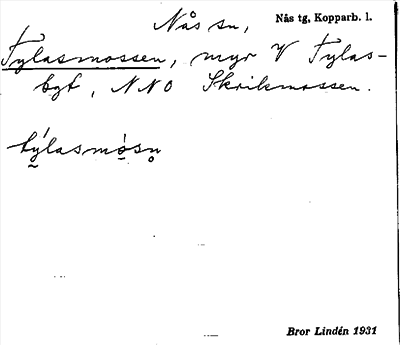 Nås sn, Nås tg, Kopparb. l.
Tylasmossen, myr V Tylas-
bgt, NNO Skrikmossen.
týlasmósn̥
Bror Lindén 1931